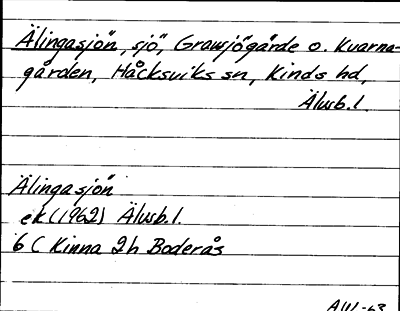 Älingasjön, sjö, Gravsjögärde o. Kvarna-
gården, Håcksviks sn, Kinds hd,
Älvsb. l.
Älingasjön
ek (1962) Älvsb. l.
6 C Kinna 2h Boderås